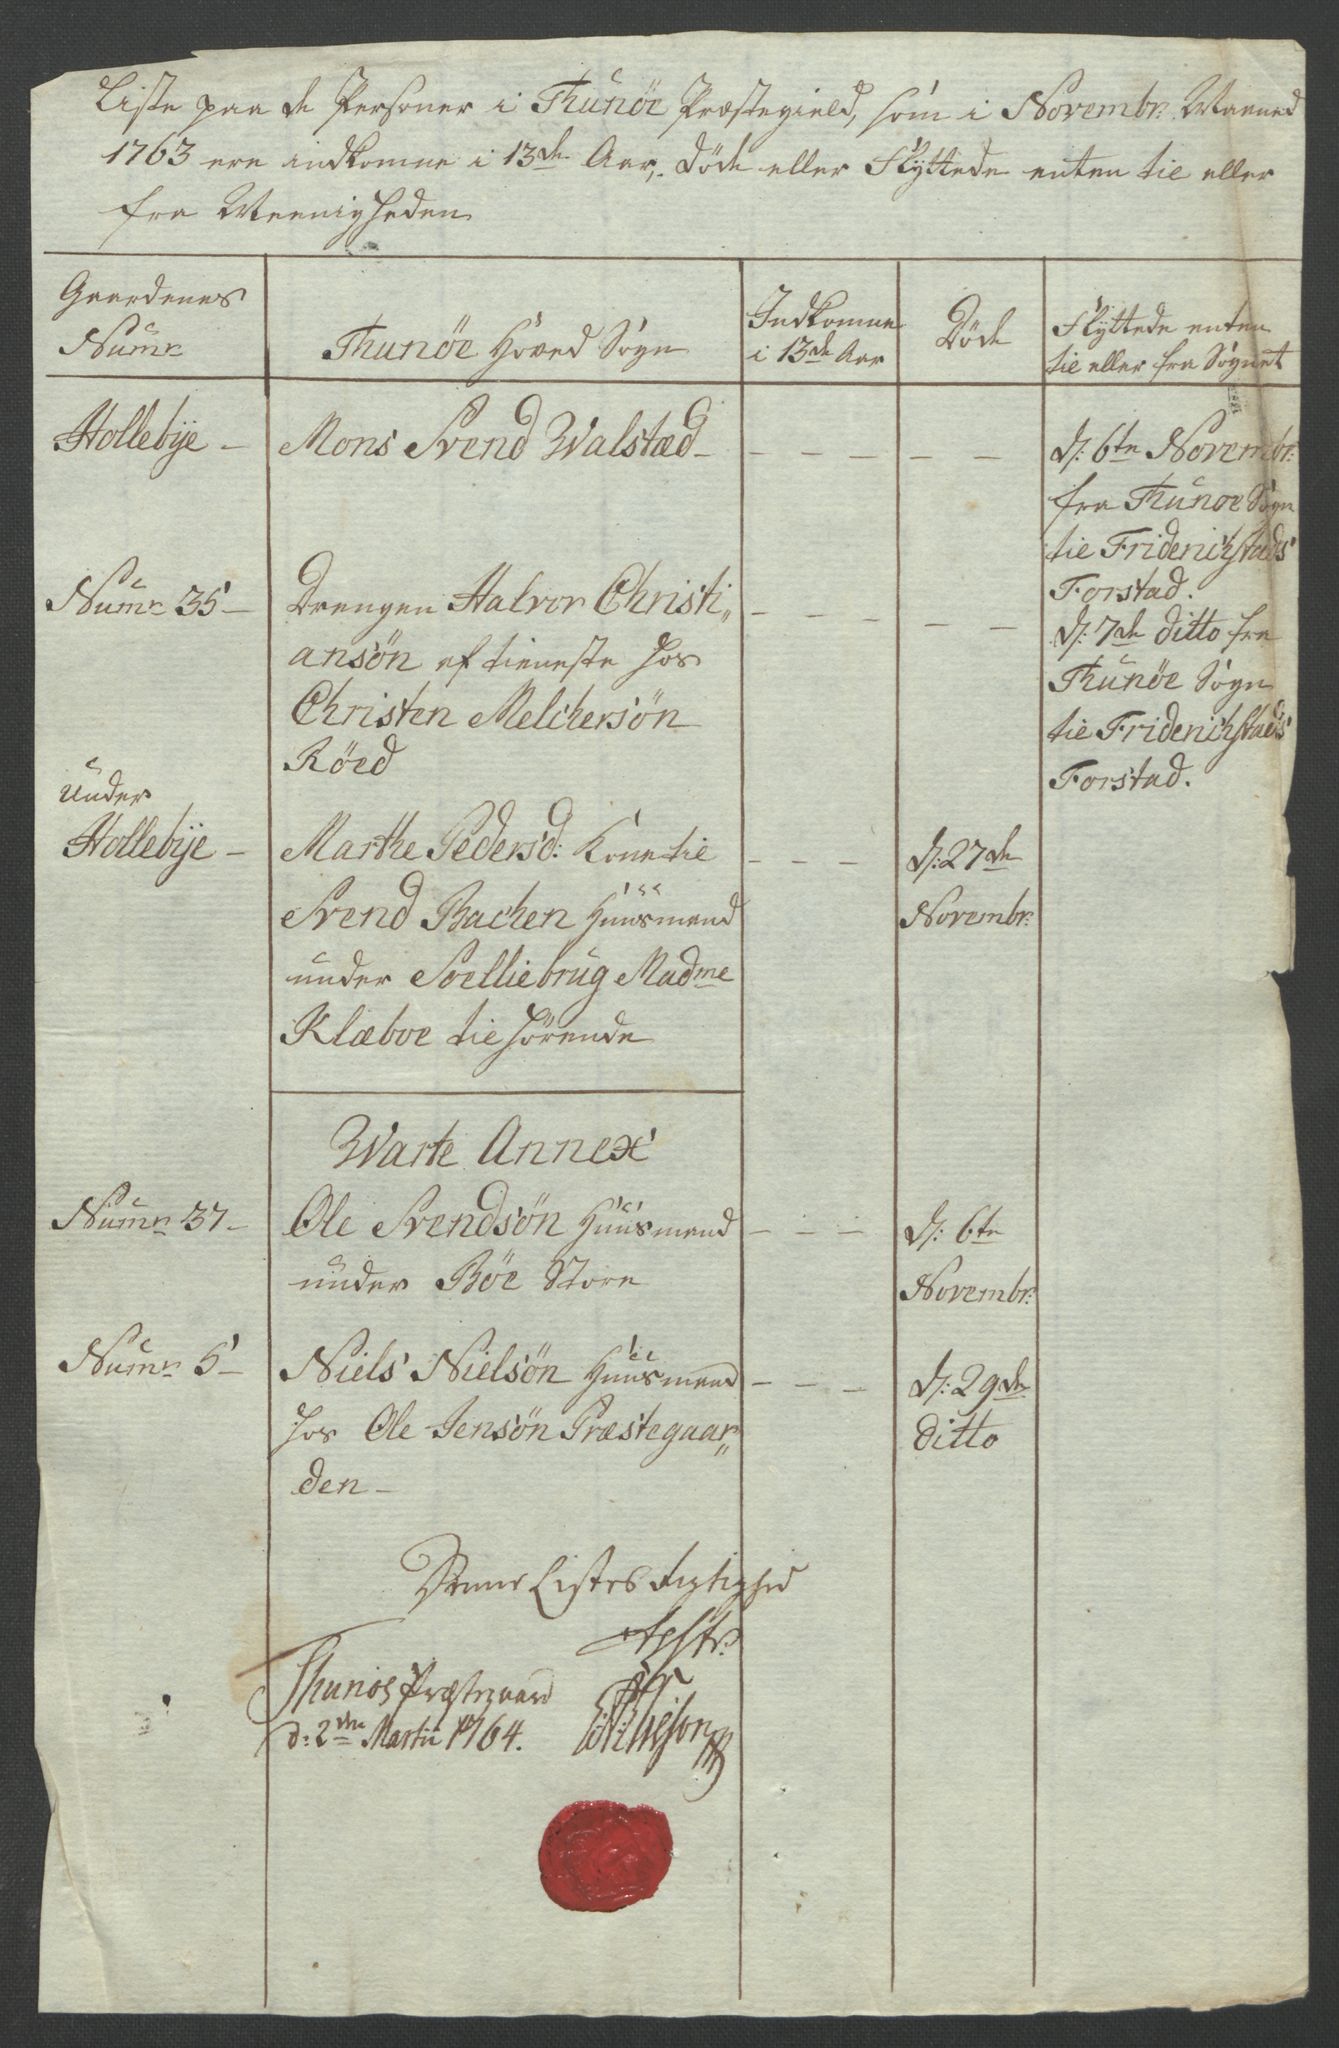 Liste paa de Personer i Thunöe Præstegield, som i Novembr: Maaned
1763 ere indkomne i 13de Aar, Döde eller Flyttede enten til eller
fra Meenigheden
Gaardenes
Numr:
Thunöe Hoved Sogn
Indkomne
i 13de Aar
Döde
Flyttede enten
til eller fra Sognet
Hollebÿe –
Mons Svend Walstæd – – – – – – –
d: 6te Novembr:
fra Thunöe Sogn
til Friderichstads
Forstad.
Numr: 35 –
Drengen Halvor Christi„ – – – – – – –
ansön af tieneste hos
Christen Melchersön
Röed
d: 7de ditto fra
Thunöe Sogn
til Friderichstads
Forstad.
Under
Hollebÿe –
Marthe Pedersd: Kone til – – –
Svend Bachen Huusmand
under Soelliebrug Madme
Klæboe tilhörende
d: 27de
Novembr:
Warte Annex
Numr: 37 –
Ole Svendsön Huusmand – – –
under Böe Store
d: 6te
Novembr:
Numr: 5 –
Niels Nielsön Huusmand – – –
hos Ole Jensön Præstegaar„
den –
d: 29de
ditto
Denne Listes Rigtighed
Thunöe Præstegaard
d: 2den Martii 1764.